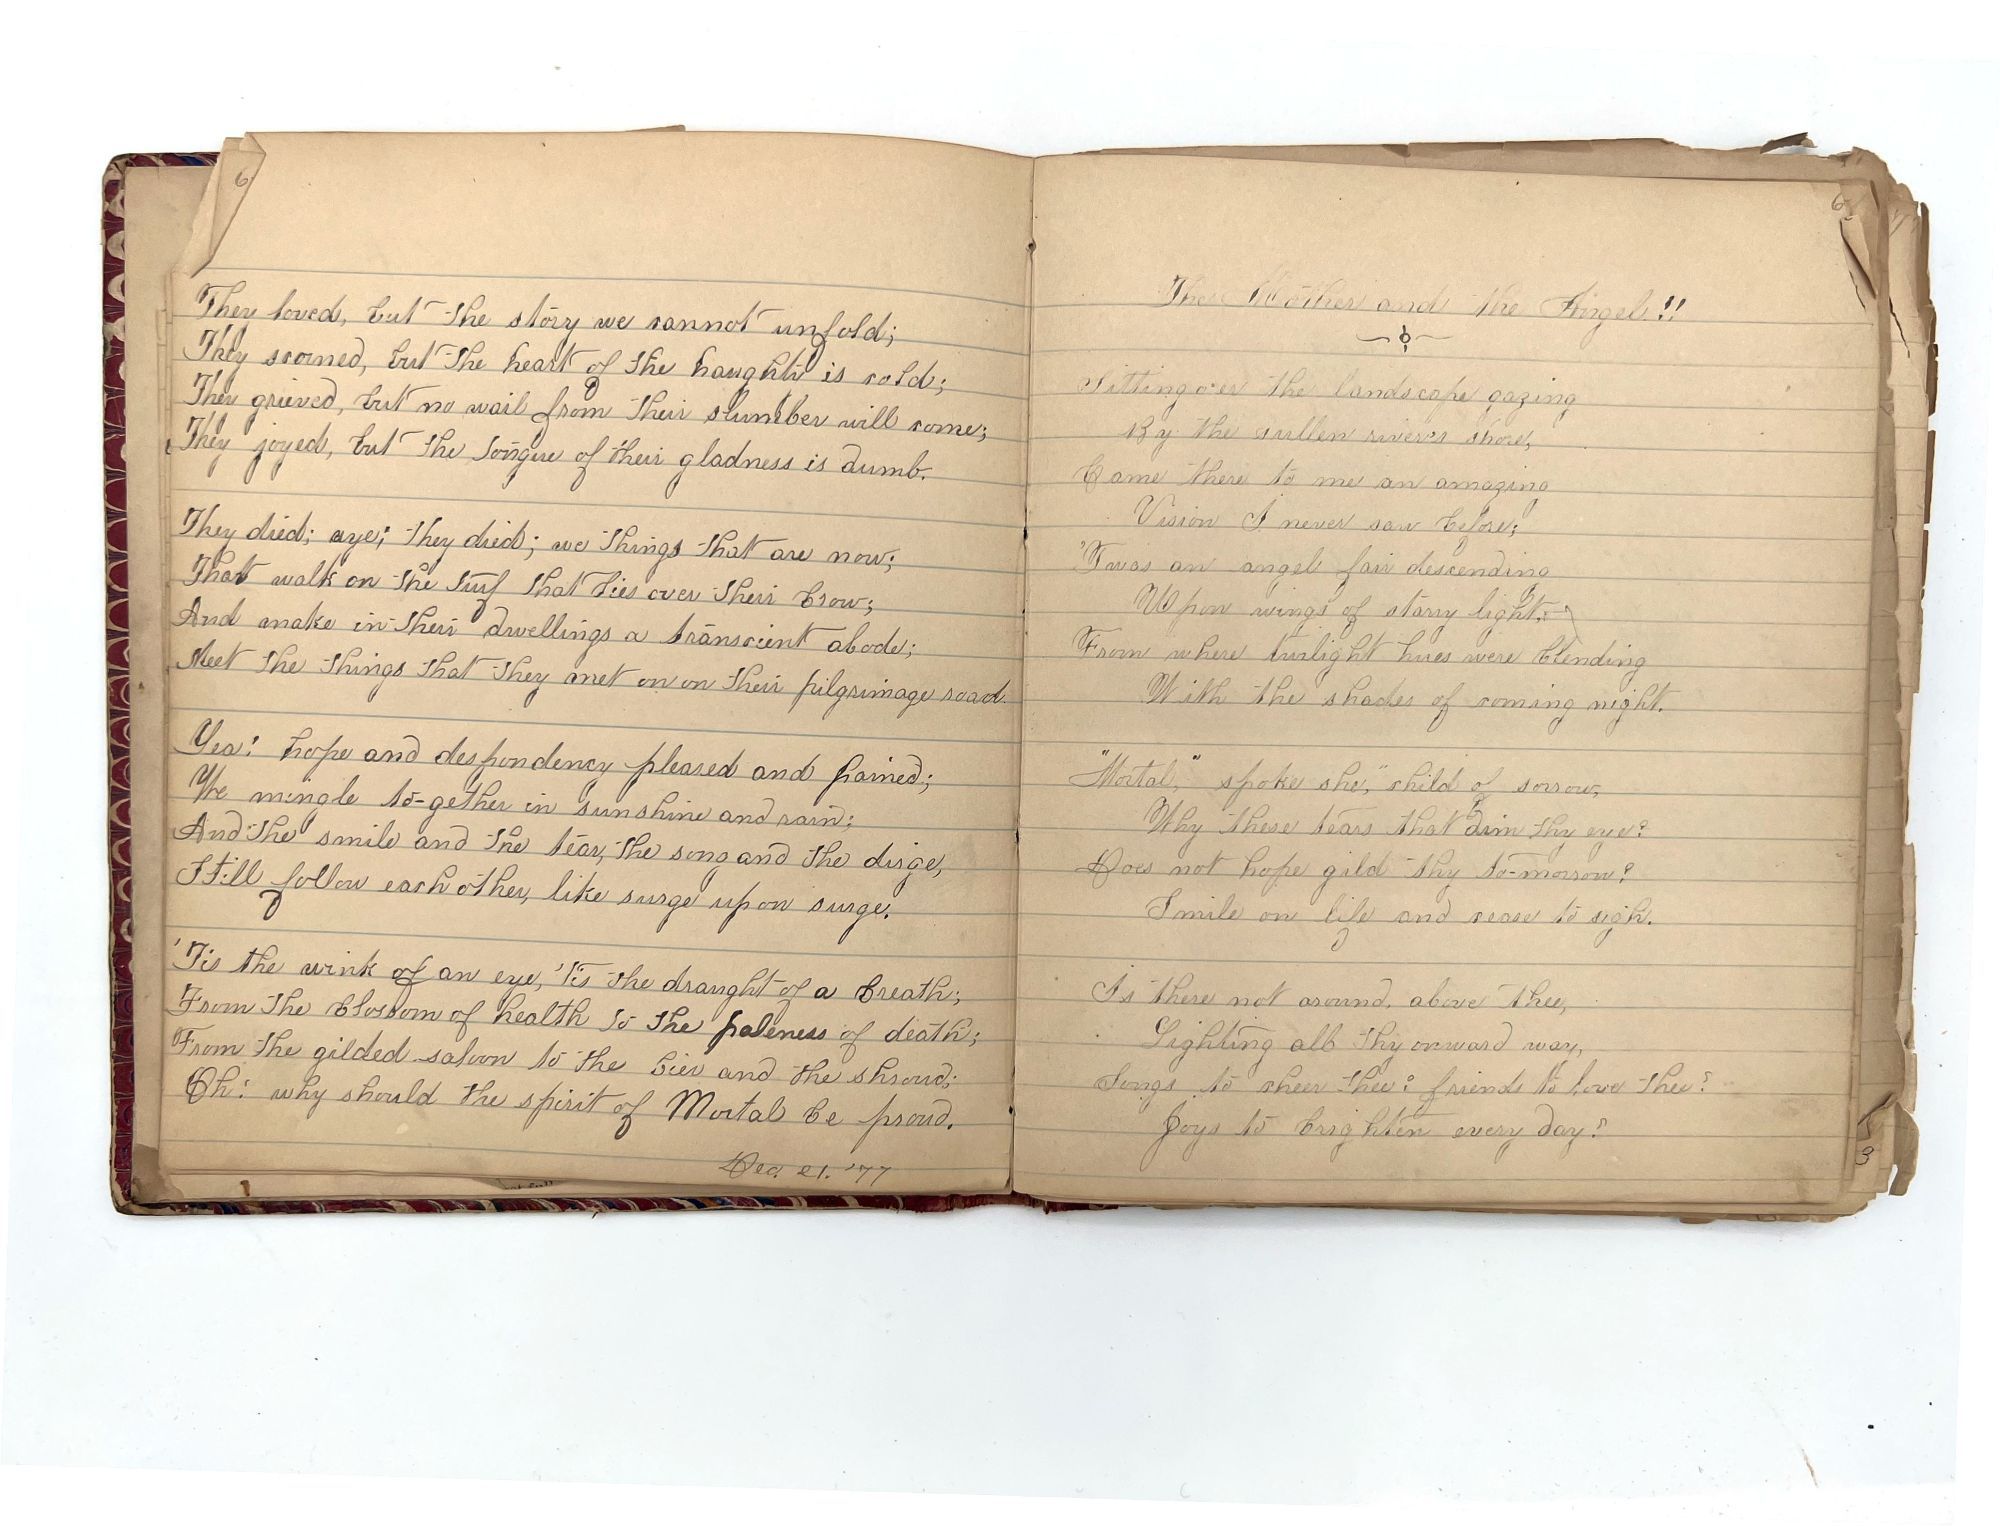 6
They loved, but the story we cannot unfold;
They scorned, but the heart of the haughty is cold;
They grieved, but no wail from their slumber will come;
They joyed, but the tongue of their gladness is dumb.
They died; aye; they died; we things that are now;
That walk on the turf that lies over their brow;
And make in their dwellings a transcient abode;
Meet the things that they met on on their pilgrimage road.
Yea! hope and despondency pleased and pained;
We mingle to-gether in sunshine and rain;
And the smile and the tear, the song and the dirge,
Still follow each other, like surge upon surge.
'Tis the wink of an eye, 'tis the draught of a breath;
From the blossom of health to the paleness of death;
From the gilded saloon to the bier and the shroud;
Oh! why should the spirit of Mortal be proud.
Dec. 21. '77
6
The Mother and the Angel!!
Sitting o'er the landscape gazing
By the sullen river's shore,
Came there to me an amazing
Vision I never saw before;
'Twas an angel fair descending
Upon wings of starry light,
From where twilight hues were blending
With the shades of coming night.
"Mortal," spoke she, "child of sorrow,
Why these tears that dim thy eye?
Does not hope gild thy to-morrow?
Smile on life and cease to sigh.
Is there not around, above thee,
Lighting all thy onward way,
Songs to cheer thee? friends to love thee?
Joys to brighten every day?
3